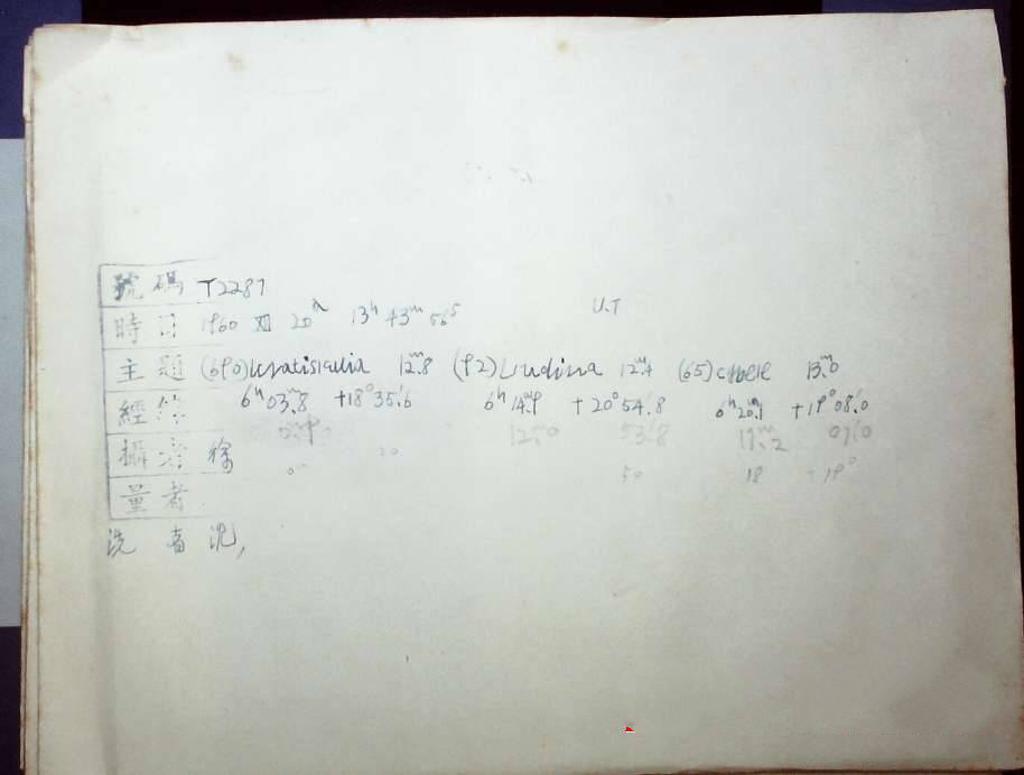 號碼 T2287
時日 1960 XII 20ᵈ 13ʰ 43ᵐ 56ˢ U.T
主題 (690)Wratislavia 12ᵐ.8 (92)Undina 12ᵐ.4 (65)cybele 13ᵐ.0
經緯 6ʰ03ᵐ.8 +18°35'.6 6ʰ14ᵐ.9 +20°54'.8 6ʰ20ᵐ.1 +19°08'.0
攝者 徐 12ᵐ.0 53'.8 19ᵐ.2 07'.0
50 18 19°
量者
洗者 沈,